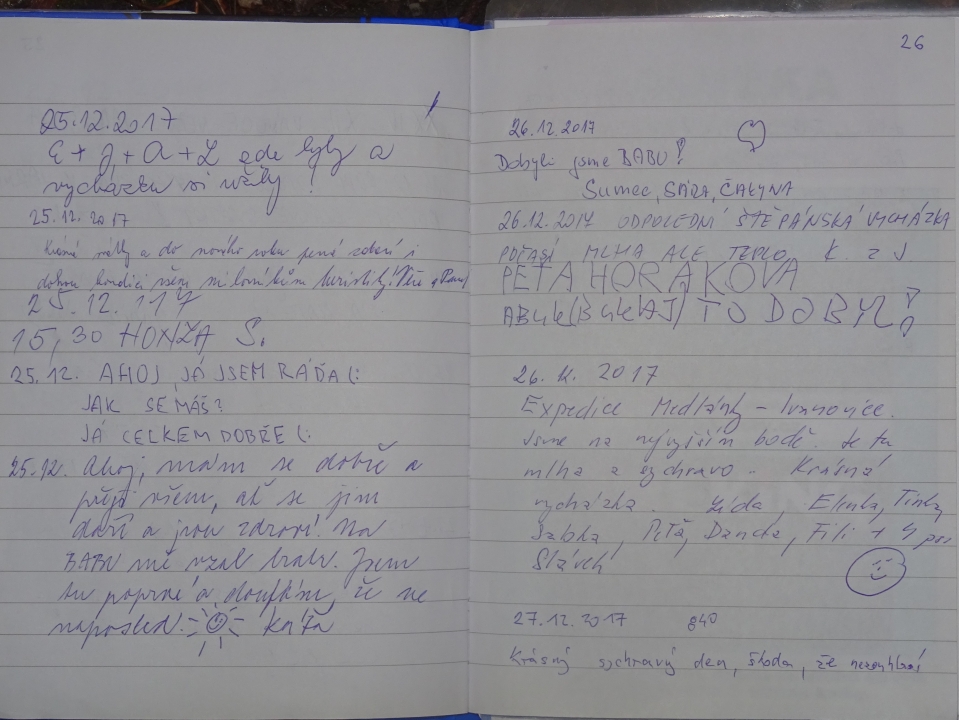 25.12.2017
E + J + A + L zde byly a
vycházku si užily !
25.12. 2017
Krásné svátky a do nového roku pevné zdraví i
dobrou kondici všem milovníkům turistiky!
25. 12. 117
15,30 HONZA S.
25.12. AHOJ JÁ JSEM RÁĎA (:
JAK SE MÁŠ?
JÁ CELKEM DOBŘE (:
25.12. Ahoj, mám se dobře a
přeji všem, ať se jim
daří a jsou zdraví! Na
BABU mě vzal bratr. Jsem
tu poprvé a doufám, že ne
naposled. Káťa
26
26.12.2017
Dobyli jsme BABU !
Sumec, SÁRA, ČAŁYNA
26.12.2017 ODPOLEDNÍ ŠTĚPÁNSKÁ VYCHÁZKA
POČASÍ MLHA ALE TEPLO, K. z J
PETA HORÁKOVÁ
ABUK(BUKAJ) TO DOBYL!
26. 12. 2017
Expedice Medlánky - Ivanovice.
Jsme na nejvyšším bodě. Je tu
mlha a sychravo. Krásná
vycházka. Lída, Elinka, Tinka,
Sabka, Peťa, Dancta, Fili + 4 psi
27.12.2017 840
Krásný sychravý den, škoda, že